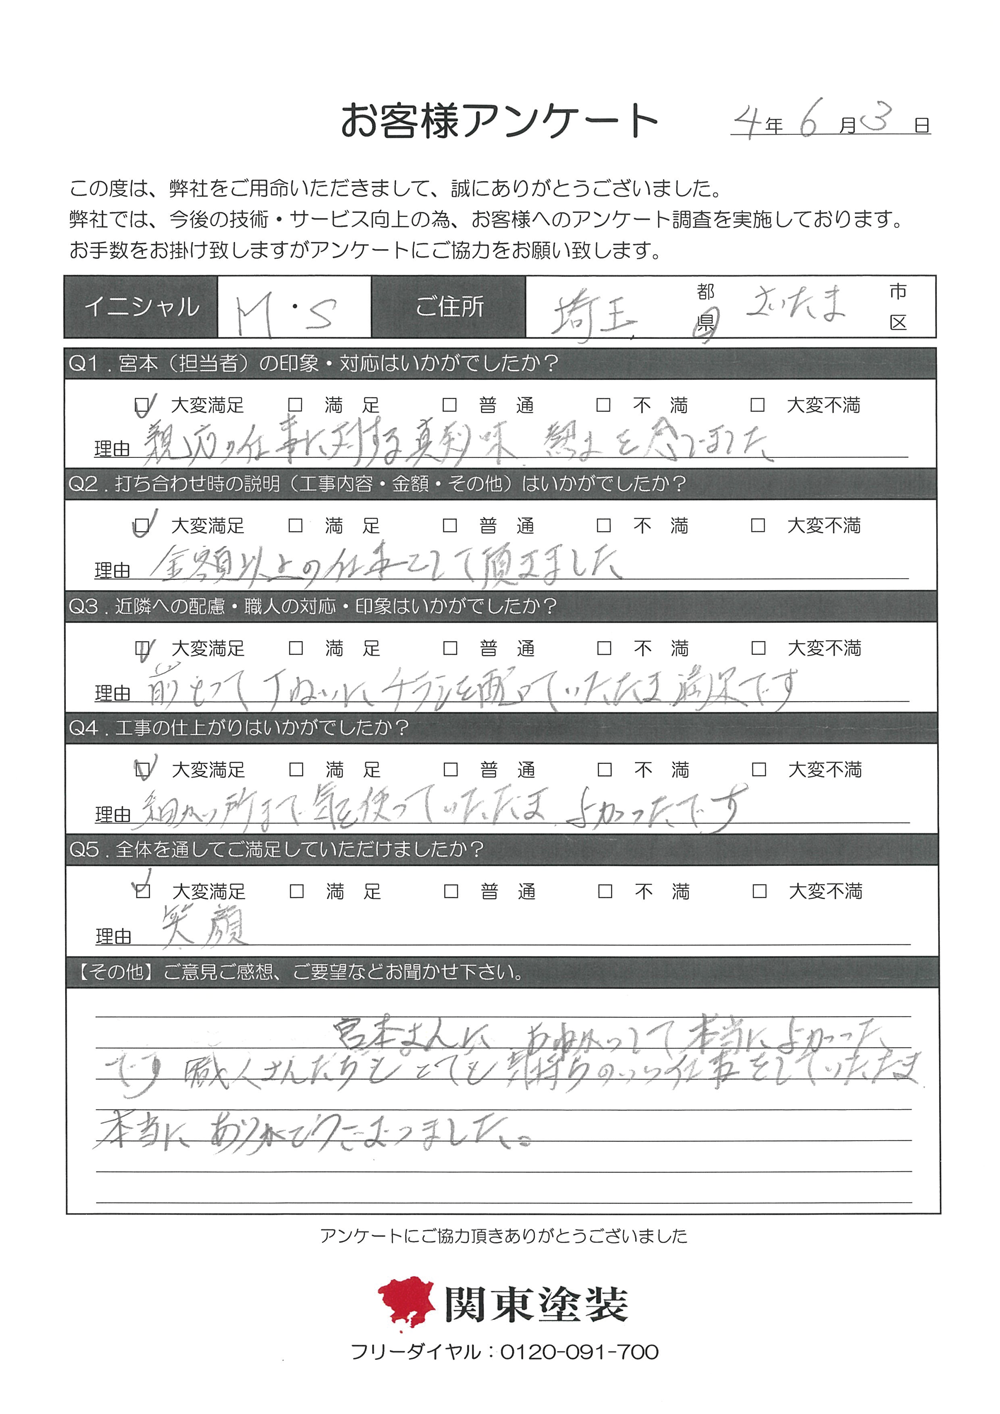 お客様アンケート
4年 6月 3日
この度は、弊社をご用命いただきまして、誠にありがとうございました。
弊社では、今後の技術・サービス向上の為、お客様へのアンケート調査を実施しております。
お手数をお掛け致しますがアンケートにご協力をお願い致します。
イニシャル M・S ご住所 埼玉 都 県 さいたま 市 区
Q1．宮本（担当者）の印象・対応はいかがでしたか？
☑ 大変満足 □ 満 足 □ 普 通 □ 不 満 □ 大変不満
理由 の仕事に対する真剣味 熱さを感じました
Q2．打ち合わせ時の説明（工事内容・金額・その他）はいかがでしたか？
☑ 大変満足 □ 満 足 □ 普 通 □ 不 満 □ 大変不満
理由 金額以上の仕事をして頂きました
Q3．近隣への配慮・職人の対応・印象はいかがでしたか？
☑ 大変満足 □ 満 足 □ 普 通 □ 不 満 □ 大変不満
理由 前もって丁ねいにチラシを配っていただき満足です
Q4．工事の仕上がりはいかがでしたか？
☑ 大変満足 □ 満 足 □ 普 通 □ 不 満 □ 大変不満
理由 細かい所まで気を使っていただき よかったです
Q5．全体を通してご満足していただけましたか？
☑ 大変満足 □ 満 足 □ 普 通 □ 不 満 □ 大変不満
理由 笑顔
【その他】ご意見ご感想、ご要望などお聞かせ下さい。
宮本さんに おねがいして本当によかった
です 職人さんたちもとても気持ちのいい仕事をしていただき
本当にありがとうございました。
アンケートにご協力頂きありがとうございました
関東塗装
フリーダイヤル：0120-091-700